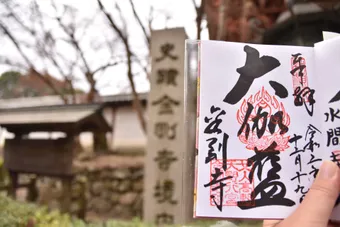 史蹟金剛寺境内
奉拝
令和二年
十二月十九日
大伽藍
金剛寺
水間